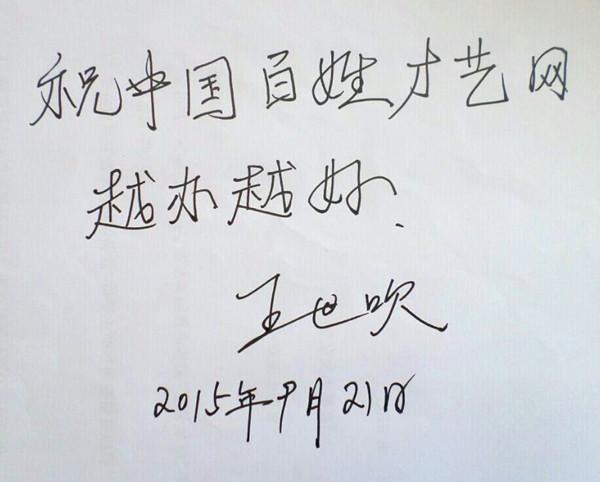 祝中国百姓才艺网
越办越好.
王世吹
2015年9月21日